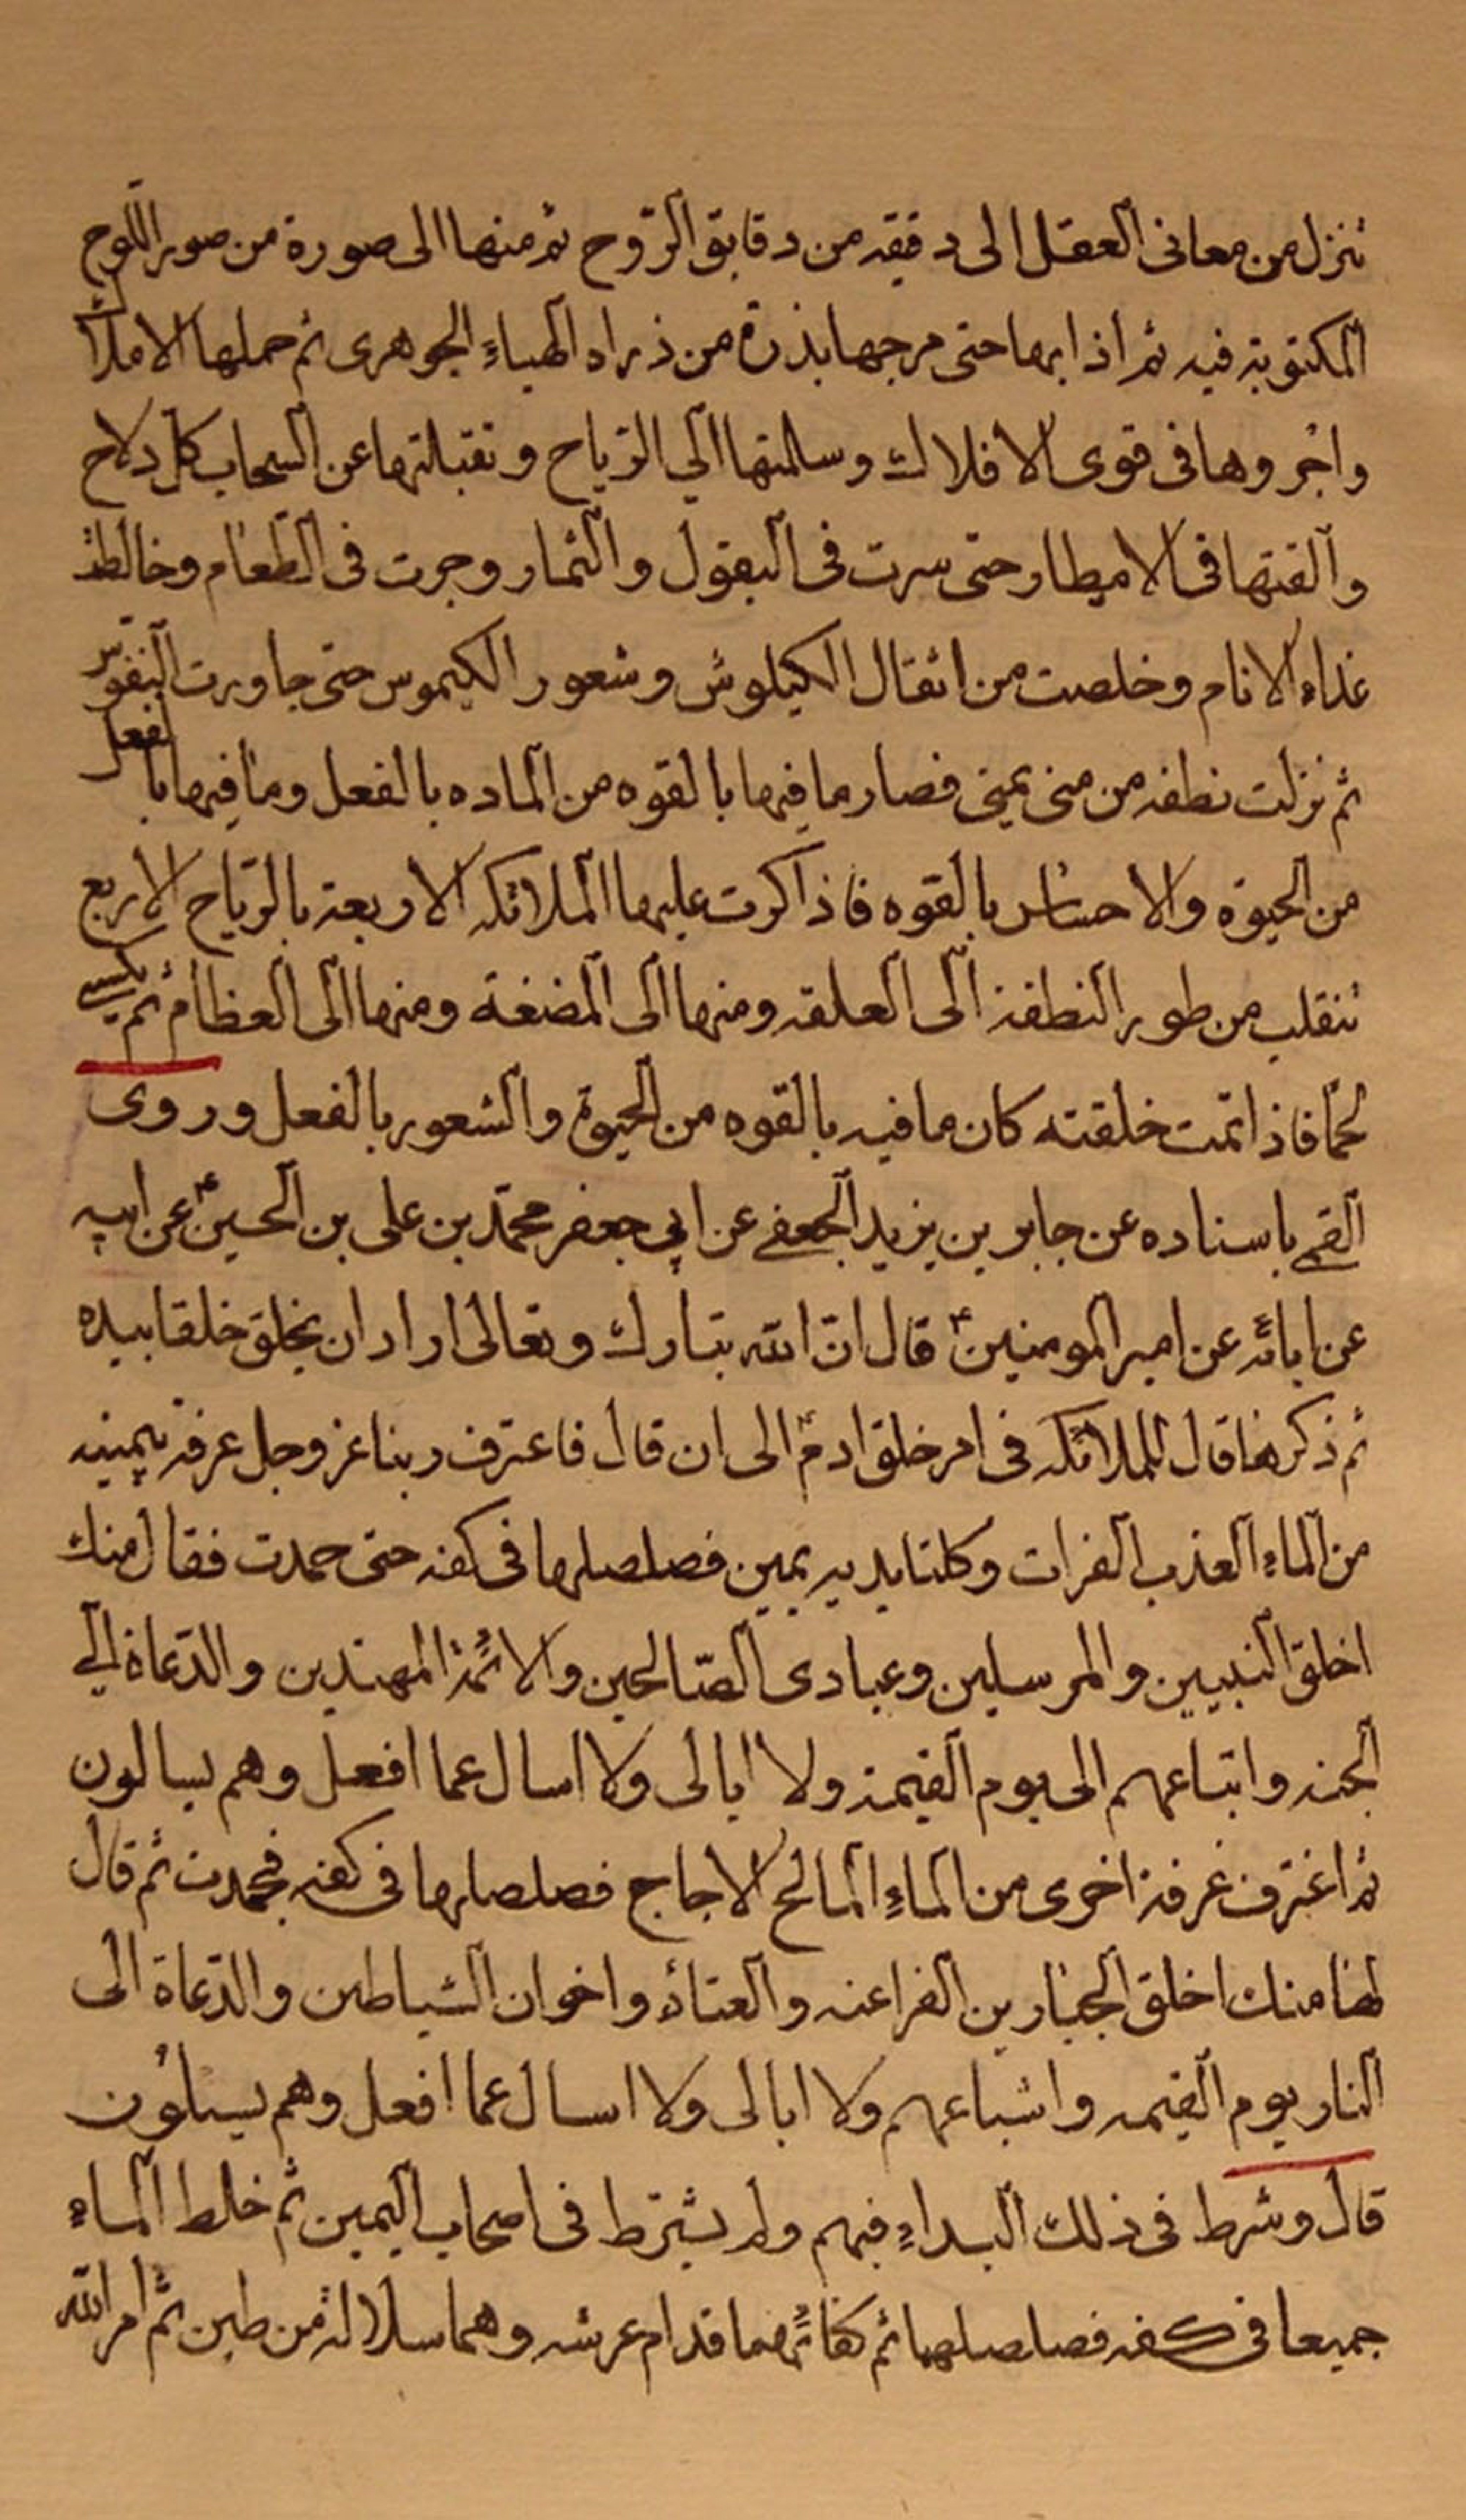 تنزل من معانى العقل الى دقيقه من دقايق الرّوح ثم منها الى صورة من صور اللّوح
المكتوبة فيه ثم اذابها حتى مرجها بذرة من ذراه الهباءِ الجوهرى ثم حملها الاملاك
واجروها فى قوى الافلاك وسالمتها الي الرّياح وتقبلتها عن السحاب كل دلاح
والقتها فى الاميطار حتى سرت فى البقول والثمار وجرت فى الطّعام وخالطت
غذاء الانام وخلصت من اثقال الكيلوش وشعور الكيموس حتى جاورت النفوس
ثم نزلت نطفه من منى يمنى فصار ما فيها بالقوه من الماده بالفعل وما فيها بالفعل
من الحيوة والاحساس بالقوه فاذا كرت عليها الملائكه الاربعة بالرّياح الاربع
تنقلب من طور النطفة الى العلقه ومنها الى المضغة ومنها الى العظام ثم يكسى
لحمًا فاذا تمت خلقته كان ما فيه بالقوه من الحيوة والشعور بالفعل وروى
القمي باسناده عن جابر بن يزيد الجعفي عن ابي جعفر محمّد بن على بن الحسين ع عن ابيه
عن ابائه عن امير المومنين ع قال انّ الله تبارك وتعالى اراد ان يخلق خلقا بيده
ثم ذكر ما قال للملائكه فى امر خلق ادم ع الى ان قال فاعترف ربنا عز وجل عرفة بيمينه
من الماءِ العذب الفرات وكلتا يديه يمين فصلصلها فى كفه حتى حمدت فقال منك
اخلق النبيين والمرسلين وعبادى الصّالحين والائمة المهتدين والدّعاة الي
الجنه واتباعهم الى يوم القيمة ولا ابالى ولا اسال عما افعل وهم يسالون
ثم اغترف غرفة اخرى من الماءِ المالح الاجاج فصلصلها فى كفه فجمدت ثم قال
لها منك اخلق الجبارين الفراعنه والعتاة واخوان الشياطين والدّعاة الى
النار يوم القيمه واشباعهم ولا ابالى ولا اسال عما افعل وهم يسئلون
قال وشرط فى ذلك البداءِ فيهم ولم يشترط فى اصحاب اليمين ثم خلط الماءِ
جميعا فى كفه فصلصلهما ثم كفائهما قدام عرشه وهما سلالة من طين ثم امر الله